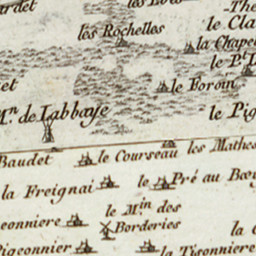 les Rochelles
le Cla
la Chape
le Pt
le Foroin
Mn. de Labbaye
le Pig
Baudet
le Courseau
les Mathes
la Freignai
le Pré au Bœu
eonniere
le Min des
Borderies
Pigeonnier
la Tisonniere